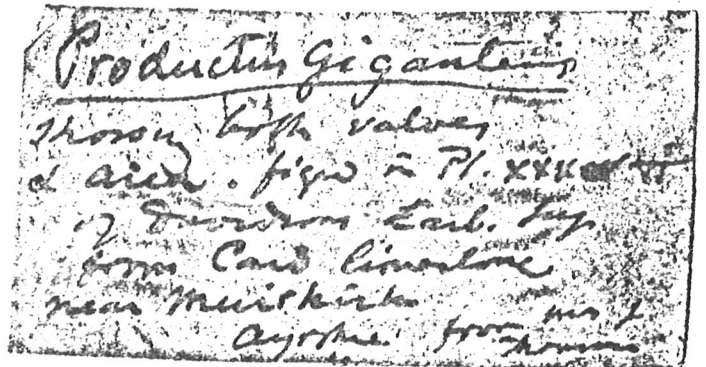 Productus Giganteus
showing both valves
& area. figd in Pl. xxx
of Davidsons Carb.
from Card limestone
near Muirkirk
Ayrshire. from Mr J
Thomson